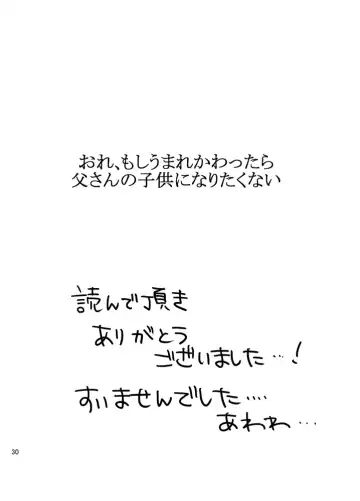 おれ、もしうまれかわったら
父さんの子供になりたくない
読んで頂き
ありがとう
ございました…!
すいませんでした....
あわわ…
30